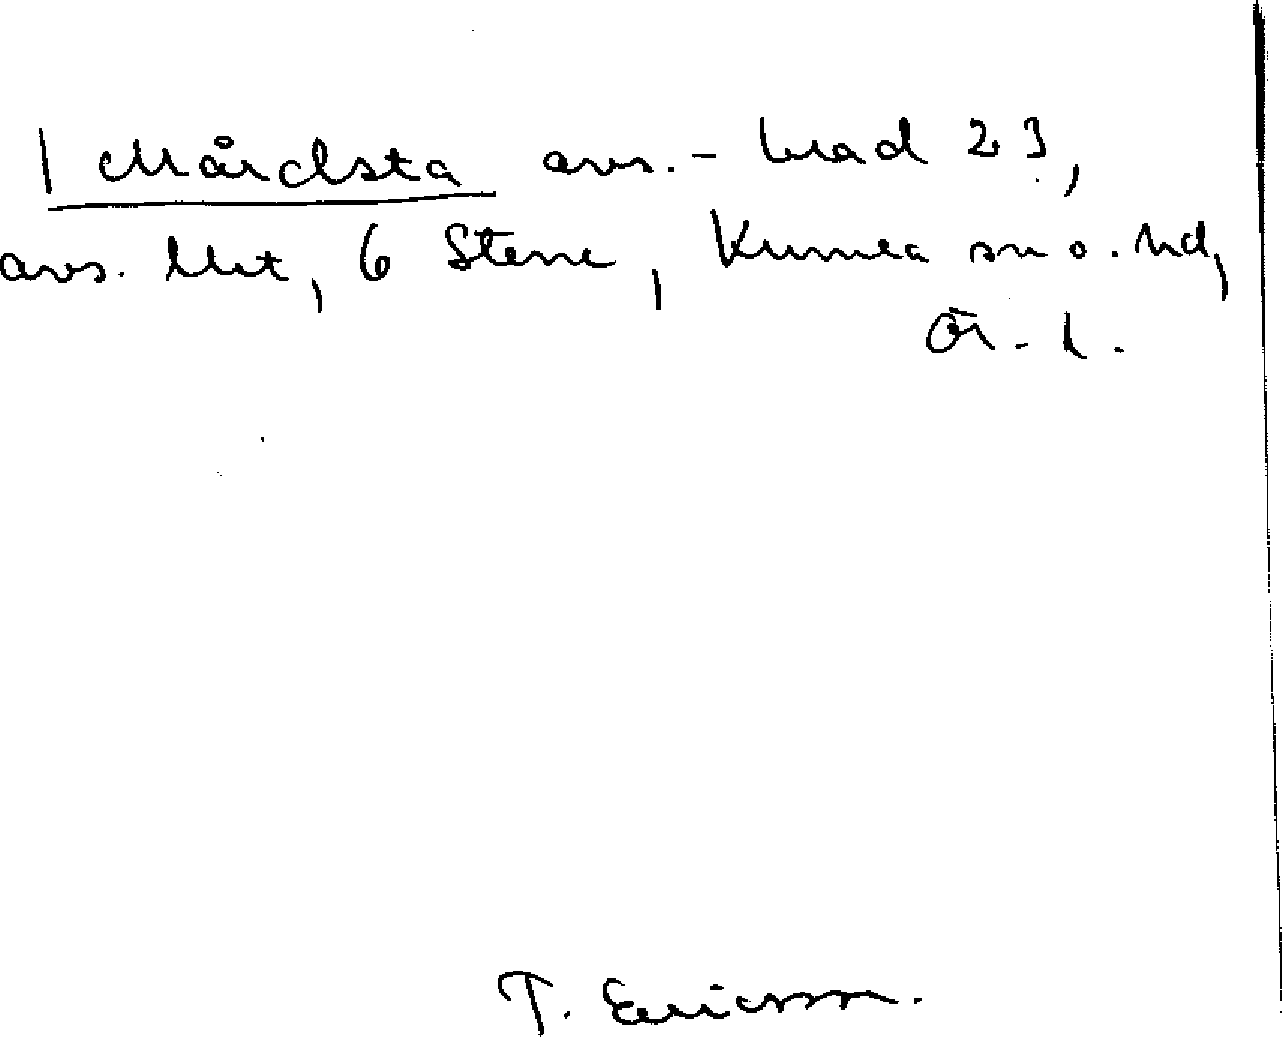 | Mårdsta avs.- blad 23,
avs. Utt, 6 Stene, Kumla sn o. hd,
Ör. l.
T. Ericsson.